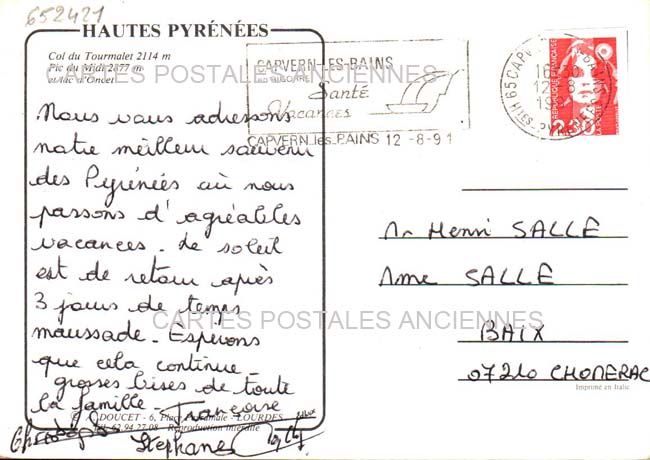 652421
HAUTES PYRÉNÉES
Col du Tourmalet 2114 m
Pic du Midi 2877 m
et lac d'Oncet
CARTES POSTALES ANCIENNES
CAPVERN-LES-BAINS
en BIGORRE
Santé
Vacances
CAPVERN les BAINS 12-8-91
16 30
12-8
REPUBLIQUE FRANÇAISE
2,30
LA POSTE
Nous vous adressons
notre meilleur souvenir
des Pyrénées où nous
passons d'agréables
vacances. Le soleil
est de retour après
3 jours de temps
maussade. Espérons
que cela continue.
grosses bises de toute
la famille. Françoise
Stéphane
Mr Henri SALLE
Mme SALLE
BAIX
07210 CHOMERAC
CARTES POSTALES ANCIENNES
DOUCET - 6, Place - LOURDES
Tél. 62.94.27.08 - Reproduction interdite
Imprimé en Italie